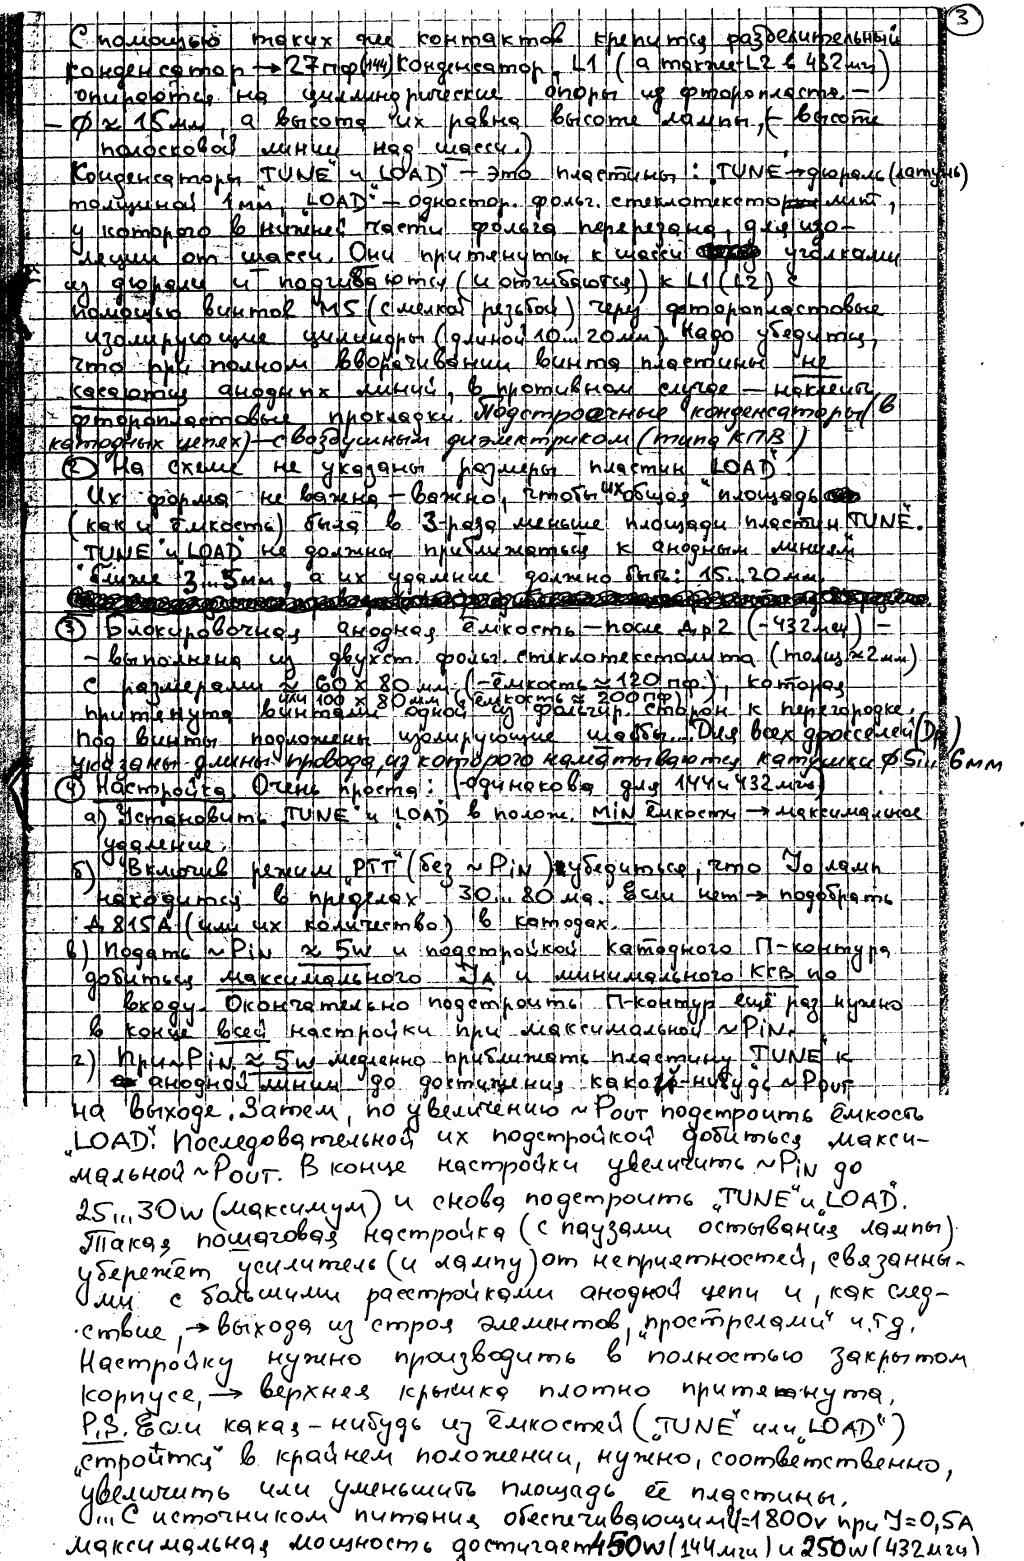 3
С помощью таких же контактов крепится разделительный
конденсатор → 27пф(144) Конденсатор, L1 (а также L2 в 432мгц)
опираются на цилиндрические опоры из фторопласта –
– ϕ ≈ 15мм, а высота их равна высоте лампы, (– высоте
полосковой линии над шасси.)
Конденсаторы „TUNE" и „LOAD" – это пластины: „TUNE" → дюраль (латунь)
толщиной 1мм, „LOAD" – одностор. фольг. стеклотекстолит,
у которого в нижней части фольга перерезана, для изо-
ляции от шасси. Они притянуты к шасси уголками
из дюрали и подгибаются (и отгибаются) к L1 (L2) с
помощью винтов М5 (с мелкой резьбой) через фторопластовые
изолирующие цилиндры (длиной 10...20мм). Надо убедится,
что при полном вворачивании винта пластины не
касаются анодных линий, в противном случае – наклеить
фторопластовые прокладки. Подстроечные конденсаторы (в
катодных цепях) – с воздушным диэлектриком (типа КПВ)
② На схеме не указаны размеры пластин „LOAD"
Их форма не важна – важно, чтобы их общая площадь
(как и ёмкость) была в 3-раза меньше площади пластин „TUNE".
„TUNE" и „LOAD" не должны приближаться к анодным линиям
ближе 3...5мм, а их удаление должно быть: 15...20мм.
③ Блокировочная анодная ёмкость – после Др2 (-432мгц) –
– выполнена из двухст. фольг. стеклотекстолита (толщ ≈ 2мм)
с размерами ≈ 60 x 80 мм. (– ёмкость ≈ 120пф.), которая
или 100 x 80мм (ёмкость ≈ 200пф)
притянута винтами одной из фольгир. сторон к перегородке.
Под винты подложены изолирующие шайбы... Для всех дросселей (Др)
указаны длины провода, из которого наматываются катушки ϕ5...6мм
④ Настройка. Очень проста: (–одинакова для 144 и 432мгц)
а) Установить „TUNE" и „LOAD" в полож. MIN ёмкости → максимальное
удаление.
б) Включив режим „PTT" (без ~PIN) убедиться, что Jо ламп
находится в пределах 30...80 ма. Если нет → подобрать
Д815А (или их количество) в катодах.
в) Подать ~PIN ≈ 5W и подстройкой катодного П-контура
добиться максимального JА и минимального КСВ по
входу. Окончательно подстроить П-контур ещё раз нужно
в конце всей настройки при максимальной ~PIN.
г) При ~PIN ≈ 5W медленно приближать пластину „TUNE" к
анодной линии до достижения какой-нибудь ~POUT
на выходе. Затем, по увеличению ~POUT подстроить ёмкость
„LOAD". Последовательной их подстройкой добиться макси-
мальной ~POUT. В конце настройки увеличить ~PIN до
25...30W (максимум) и снова подстроить „TUNE" и „LOAD".
Такая пошаговая настройка (с паузами остывания лампы)
убережёт усилитель (и лампу) от неприятностей, связанны-
ми с большими расстройками анодной цепи и, как след-
ствие, → выхода из строя элементов, „прострелами" и.т.д.
Настройку нужно производить в полностью закрытом
корпусе, → верхняя крышка плотно притянута.
P.S. Если какая-нибудь из ёмкостей („TUNE" или „LOAD")
„строится" в крайнем положении, нужно, соответственно,
увеличить или уменьшить площадь её пластины.
...С источником питания обеспечивающим U=1800V при J=0,5А
максимальная мощность достигает 450W (144мгц) и 250W (432мгц)